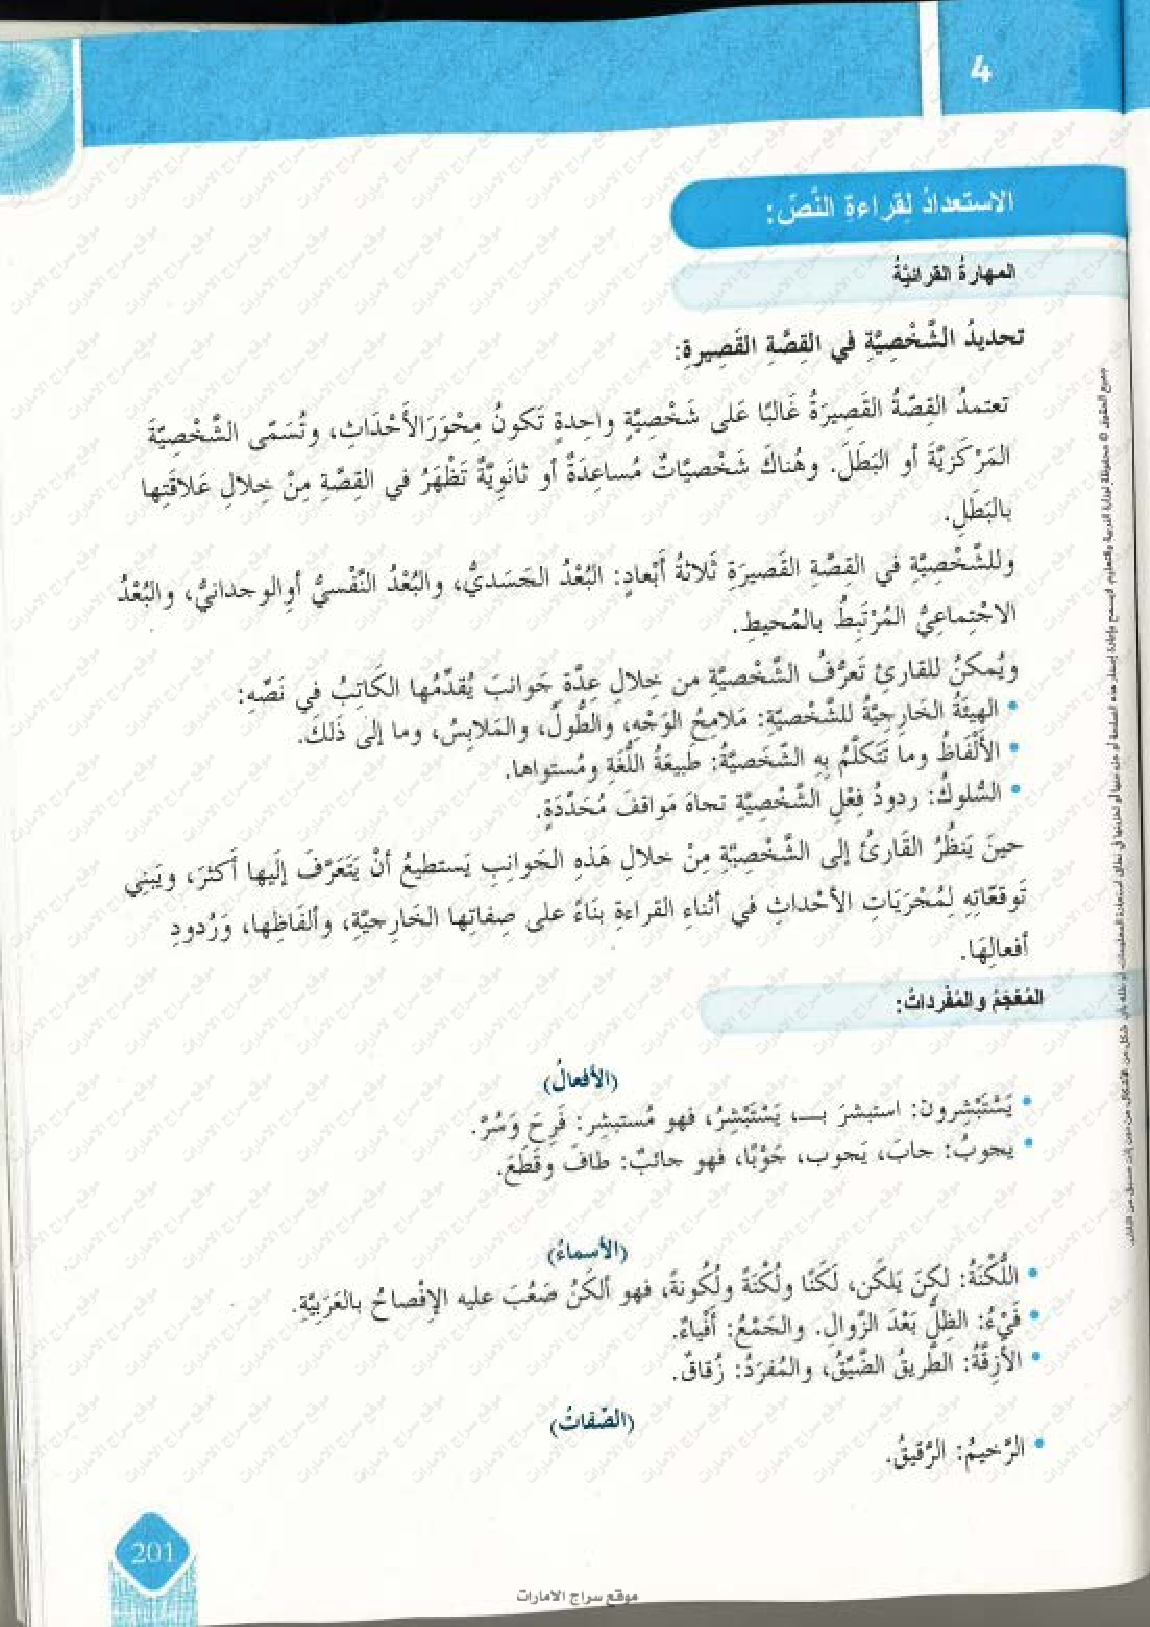 4
الاستعدادُ لقراءةِ النَّصّ:
المهارةُ القرائيَّةُ
تحديدُ الشَّخْصِيَّةِ في القِصَّةِ القَصِيرةِ:
تعتمدُ القِصّةُ القَصِيرَةُ غَالبًا عَلى شَخْصِيَّةٍ واحِدةٍ تَكونُ مِحْوَرَالأَحْدَاثِ، وتُسَمّى الشَّخْصِيّةَ
المَرْكَزيَّةَ أو البَطَلَ. وهُناكَ شَخْصِيَّاتٌ مُساعِدَةٌ أو ثانَوِيَّةٌ تَظْهَرُ في القِصَّةِ مِنْ خِلالِ عَلاقَتِها
بالبَطَلِ.
وللشَّخْصِيَّةِ في القِصَّةِ القَصِيرَةِ ثَلاثةُ أبْعادٍ: البُعْدُ الجَسَديُّ، والبُعْدُ النَّفْسيُّ أوِالوِجدانيُّ، والبُعْدُ
الاجْتِماعِيُّ المُرْتَبِطُ بالمُحيطِ.
ويُمكنُ للقارئِ تَعرُّفُ الشَّخْصِيَّة من خِلالِ عِدّةِ جَوانبَ يُقدِّمُها الكَاتِبُ في نَصّهِ:
• الهيئَةُ الخَارِجِيَّةُ للشَّخْصِيّةِ: مَلامِحُ الوَجْهِ، والطُّولُ، والمَلابِسُ، وما إلى ذَلكَ.
• الأَلْفَاظُ وما تَتَكلَّمُ بِهِ الشّخَصيَّةُ: طَبيعَةُ اللُّغَةِ ومُستواها.
• السُّلوكُ: ردودُ فِعْلِ الشَّخْصِيَّةِ تجاهَ مَواقفَ مُحَدَّدَةٍ.
حينَ يَنظُرُ القَارئُ إلى الشَّخْصِيَّةِ مِنْ خلالِ هَذهِ الجَوانِبِ يَستطيعُ أنْ يَتَعَرَّفَ إلَيها أَكثرَ، ويَبنِي
تَوقعّاتِهِ لِمُجْرَيَاتِ الأحْداثِ في أثناءِ القراءةِ بنَاءً على صِفاتِها الخَارِجيَّةِ، وألفَاظِها، وَرُدودِ
أفعالِهَا.
المُعْجَمُ والمُفْرداتُ:
(الأفعالُ)
• يَسْتَبْشِرونَ: استبشرَ بـــ، يَسْتَبْشِرُ، فهو مُستبشِر: فَرِحَ وَسُرَّ.
• يجوبُ: جابَ، يَجوب، جَوْبًا، فهو جائبٌ: طافَ وقَطَعَ.
(الأسماءُ)
• اللُّكْنَةُ: لَكِنَ يَلكَن، لَكَنًا ولُكْنَةً ولُكُونةً، فهو ألكَنُ صَعُبَ عليه الإفْصاحُ بالعَرَبِيَّةِ.
• فَيْءُ: الظِلُّ بَعْدَ الزّوالِ. والجَمْعُ: أَفْياءٌ.
• الأَزِقَّةُ: الطَّريقُ الضَّيِّقُ، والمُفرَدُ: زُقاقٌ.
(الصّفاتُ)
• الرَّخيمُ: الرَّقيقُ.
201
موقع سراج الامارات